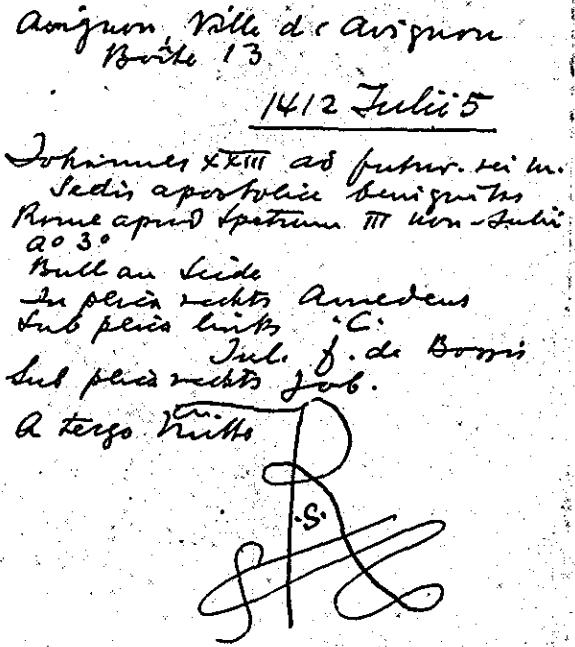 Avignon, Ville d'Avignon
Boîte 13
1412 Julii 5
Johannes XXIII ad futur. rei m.
Sedis apostolice benignitas
Rome apud Spetrum III non. Julii
a° 3°
Bull an Seide
In plica rechts Amedeus
Sub plica links .C.
Jul. f. de
Sub plica rechts Job.
A tergo Mitte
R
.S.